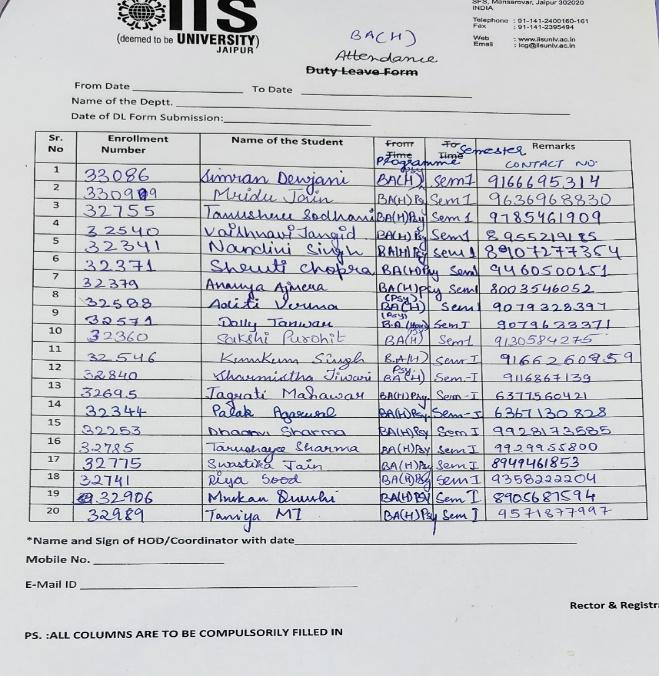 IIS
(deemed to be UNIVERSITY)
JAIPUR
SFS, Mansarovar, Jaipur 302020
INDIA
Telephone : 91-141-2400160-161
Fax : 91-141-2395494
Web : www.iisuniv.ac.in
Email : icg@iisuniv.ac.in
BA(H)
Attendance
Duty Leave Form
From Date To Date
Name of the Deptt.
Date of DL Form Submission:
Sr. No Enrollment Number Name of the Student From Time Programme To Time Semester Remarks CONTACT NO.
1 33086 Simran Devjani BA(H) Sem I 9166695314
2 330989 Mridu Jain BA(H)Psy Sem I 9636968830
3 32755 Tanushree Sodhani BA(H)Psy Sem 1 9785461909
4 32540 Vaishnavi Jangid BA(H)Psy Sem1 8955219185
5 32341 Nandini Singh BA(H)Psy sem 1 8907277354
6 32371 Shruti Chopra BA(H)Psy Sem1 9460500151
7 32379 Ananya Ajmera BA(H)Psy Sem1 8003546052
8 32588 Aditi Verma (Psy) BA(H) Sem1 9079328397
9 32571 Dolly Tanwar (Psy) B.A (Hons) Sem I 9079633371
10 32360 Sakshi Purohit Psy BA(H) Sem1 9130584275
11 32546 Kumkum Singh B.A(H) Sem I 9166260959
12 32840 Sharmistha Tiwari Psy. BA(H) Sem-I 9116867139
13 32695 Jagrati Mahawar BA(H)Psy. Sem-I 6377560421
14 32344 Palak Agarwal BA(H)Psy Sem-I 6367130828
15 32253 Dhaani Sharma BA(H)Psy Sem I 9928173585
16 32785 Tarushaya Sharma BA(H)Psy Sem I 9929955800
17 32775 Swastika Jain BA(H)Psy Sem I 8949461853
18 32741 Riya Sood BA(H)Psy Sem I 9358222204
19 32906 BA(H)Psy Sem I 8905681594
20 32989 Taniya MJ BA(H)Psy Sem I 9571877997
*Name and Sign of HOD/Coordinator with date
Mobile No.
E-Mail ID
Rector & Registr
PS. :ALL COLUMNS ARE TO BE COMPULSORILY FILLED IN